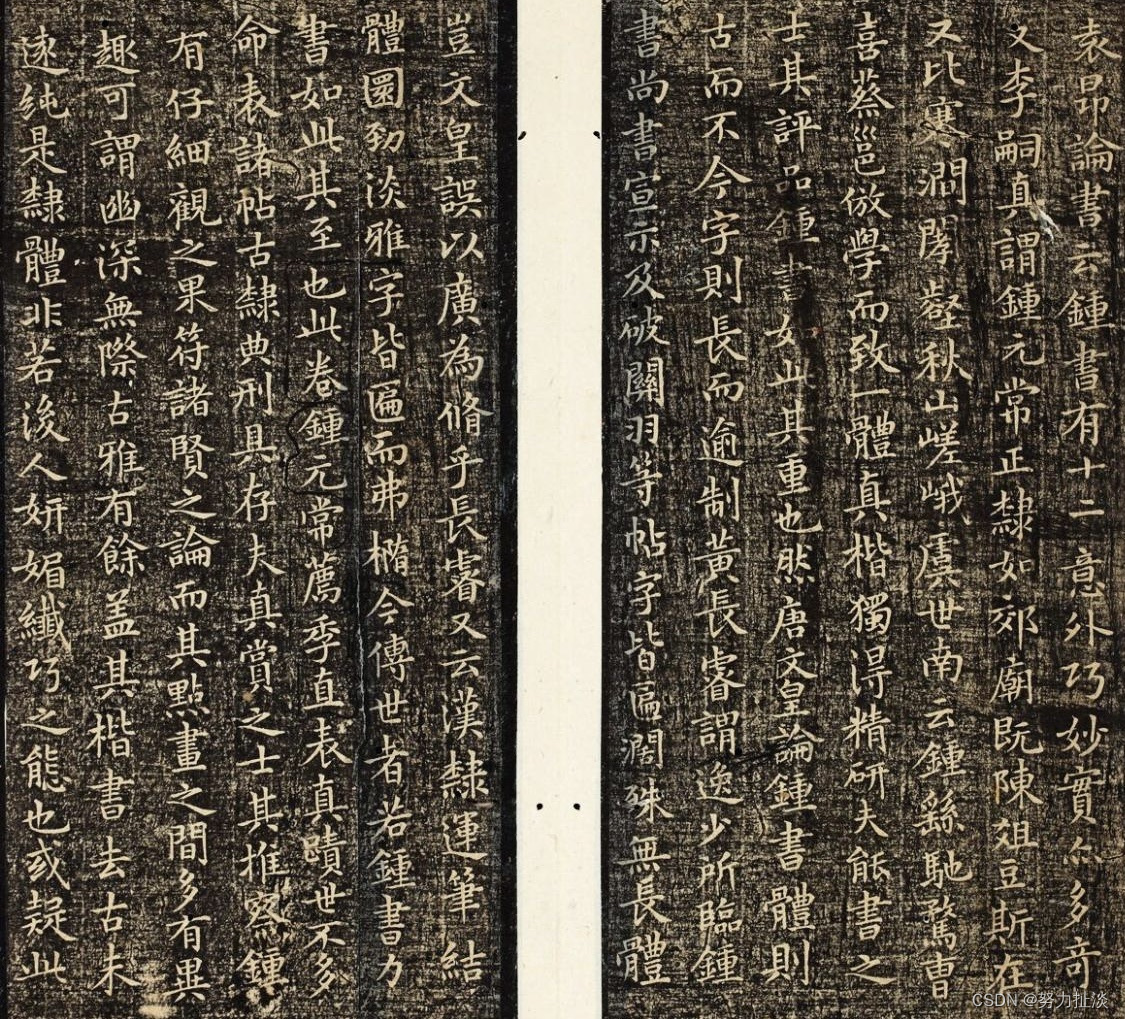 袁昂論書云鍾書有十二意外巧妙實亦多奇
又李嗣真謂鍾元常正隸如郊廟既陳俎豆斯在
又比寒澗閟壑秋山嵯峨虞世南云鍾繇馳騖曹
喜蔡邕倣學而致一體真楷獨得精研夫能書之
士其評品鍾書如此其重也然唐文皇論鍾書體則
古而不今字則長而逾制黃長睿謂逸少所臨鍾
書尚書宣示及破關羽等帖字皆匾濶殊無長體
豈文皇誤以廣為脩乎長睿又云漢隸運筆結
體圜勁淡雅字皆匾而弗橢今傳世者若鍾書力
書如此其至也此卷鍾元常薦季直表真蹟世不多
命表諸帖古隸典刑具存夫真賞之士其推察鍾
有仔細觀之果符諸賢之論而其點畫之間多有異
趣可謂幽深無際古雅有餘盖其楷書去古未
遠純是隸體非若後人妍媚纖巧之態也或疑此
CSDN @努力扯淡